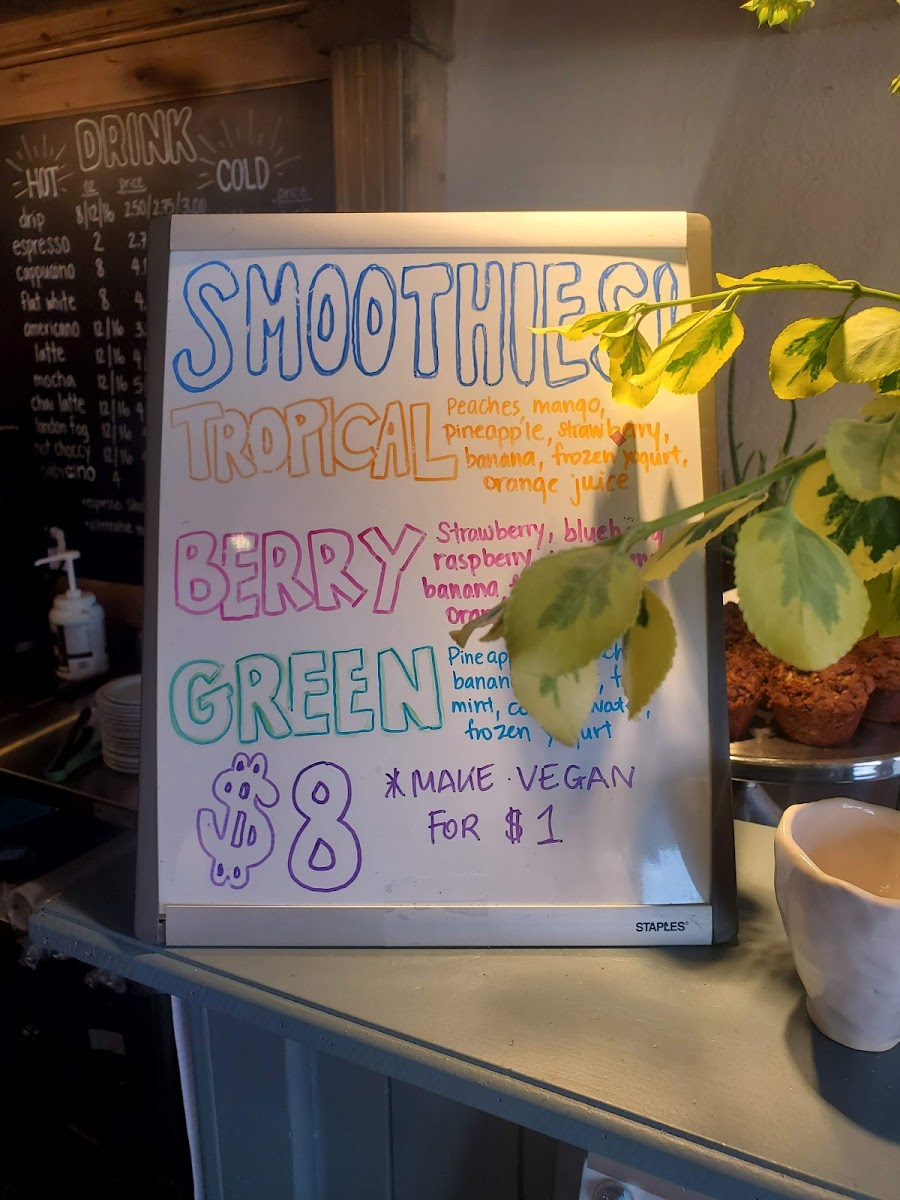 DRINK
HOT
COLD
oz price
price
drip 8/12/16 2.50/2.75/3.00
espresso 2
cappucino 8
flat white 8
americano 12/16
latte 12/16
mocha 12/16
chai latte 12/16
london fog 12/16
hot choccy 12/16
SMOOTHIES!
TROPICAL
Peaches, mango,
pineapple, strawberry,
banana, frozen yogurt,
orange juice
BERRY
Strawberry,
raspberry
banana
GREEN
mint,
frozen yogurt
$8
*MAKE VEGAN
FOR $1
STAPLES